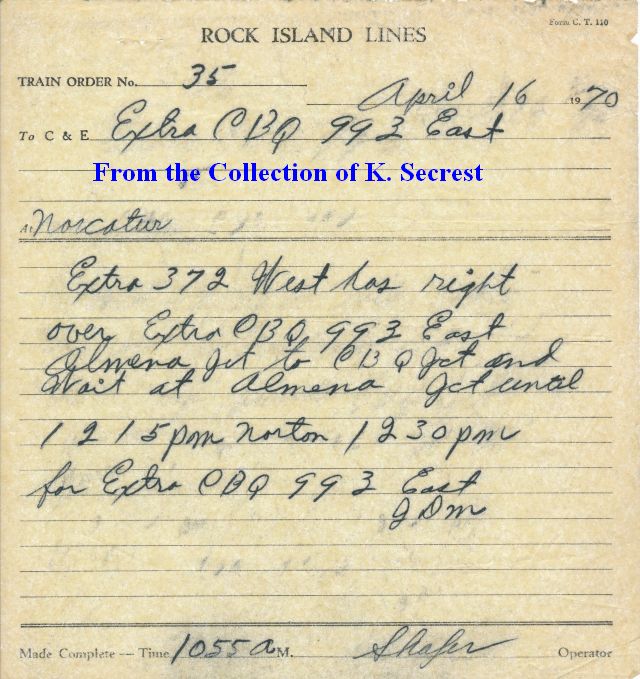 Form C. T. 110
ROCK ISLAND LINES
TRAIN ORDER No. 35
April 16 1970
To C & E Extra CBQ 993 East
From the Collection of K. Secrest
At Norcatur
Extra 372 West has right
over Extra CBQ 993 East
Almena Jct to CBQ Jct and
Wait at Almena Jct until
1215pm Norton 1230pm
for Extra CBQ 993 East
JDM
Made Complete — Time 1055 A M. Shafer Operator